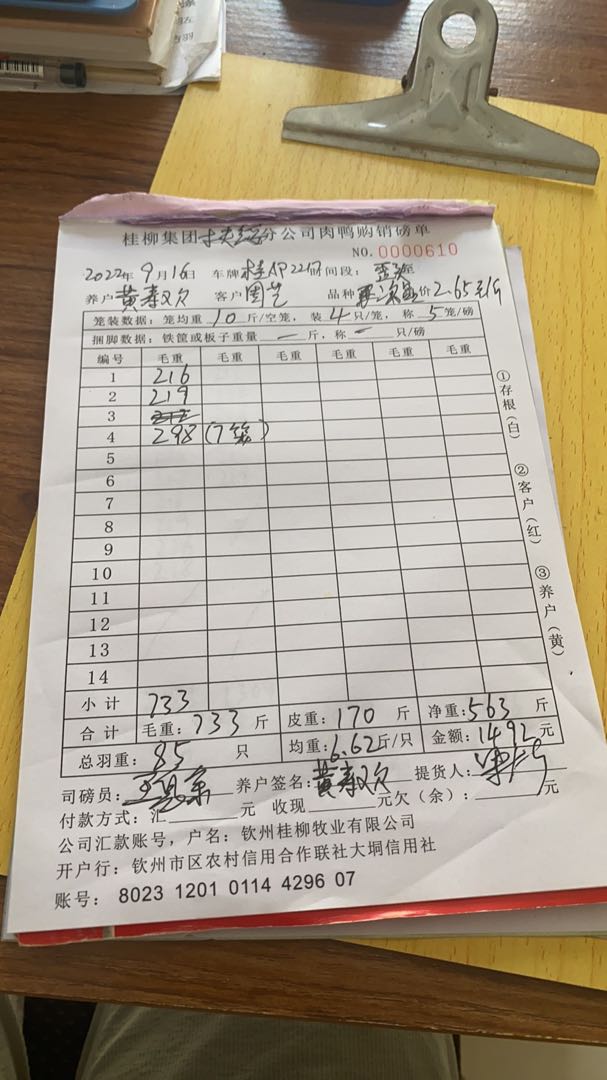 桂柳集团 分公司肉鸭购销磅单
NO.0000610
2022年9月16日 车牌桂AP22 时间段:
养户黄寿欢 客户周艺 品种 价2.65元/斤
笼装数据:笼均重10斤/空笼,装4只/笼,称5笼/磅
捆脚数据:铁筐或板子重量—斤,称—只/磅
编号 毛重 毛重 毛重 毛重 毛重 毛重
1 216
2 219
3
4 298 (7笼)
5
6
7
8
9
10
11
12
13
14
小计 733
合计 毛重:733斤 皮重:170斤 净重:563斤
总羽重:85只 均重:6.62斤/只 金额:1492元
司磅员: 养户签名:黄寿欢 提货人:
付款方式:汇 元 收现 元欠(余): 元
公司汇款账号,户名:钦州桂柳牧业有限公司
开户行:钦州市区农村信用合作联社大垌信用社
账号:8023 1201 0114 4296 07
①存根(白)
②客户(红)
③养户(黄)